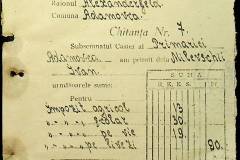 Raionul Alexanderfeld
Comuna Adamovca
Chitanţa Nr. 7.
Subsemnatul Casier al Primăriei
Adamovca am primit dela Milevschii
Ivan
S U M A
următoarele sume:
Pentru
Impozit agricol 13
" " " școlar 30
" " " pe vie 19
" " " pe livezi 80